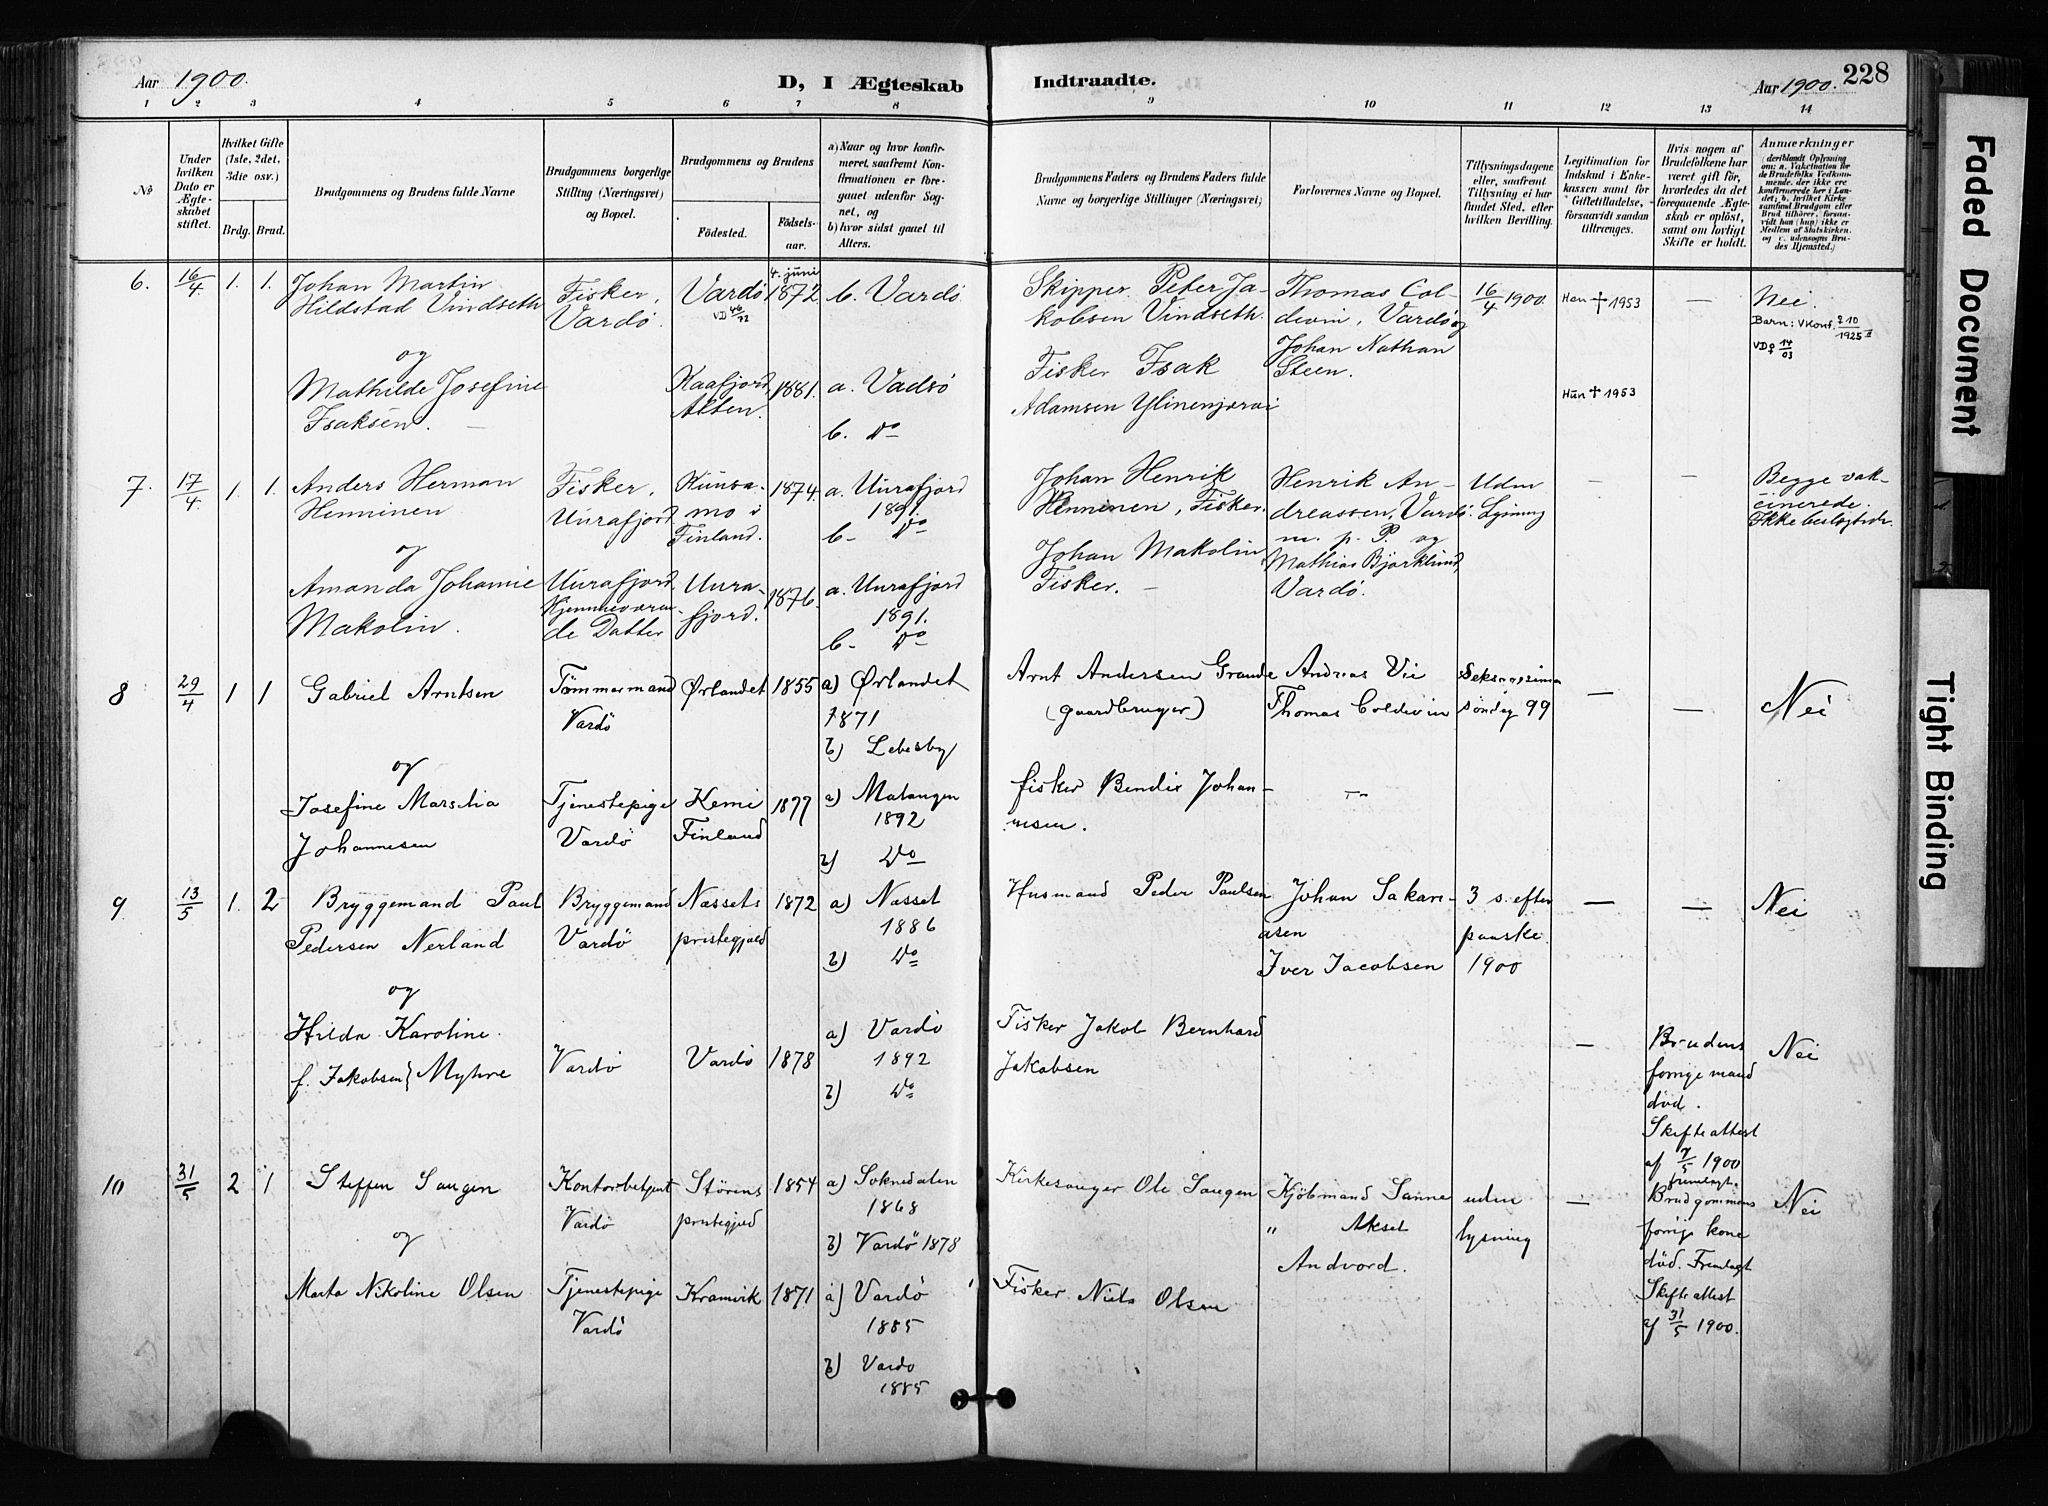 Aar 1900. D, I Ægteskab Indtraadte. Aar 1900. 228
1 2 3 4 5 6 7 8 9 10 11 12 13 14
No
Under hvilken Dato er Ægteskabet stiftet.
Hvilket Gifte (1ste, 2det, 3die osv.)
Brdg. Brud.
Brudgommens og Brudens fulde Navne
Brudgommens borgerlige Stilling (Næringsvei) og Bopæl.
Brudgommens og Brudens
Fødested.
Fødselsaar.
a) Naar og hvor konfirmeret, saafremt Konfirmationen er foregaaet udenfor Sognet, og
b) hvor sidst gaaet til Alters.
Brudgommens Faders og Brudens Faders fulde Navne og borgerlige Stillinger (Næringsvei)
Forlovernes Navne og Bopæl.
Tillysningsdagene eller, saafremt Tillysning ei har fundet Sted, efter hvilken Bevilling.
Legitimation for Indskud i Enkekassen samt for Giftetilladelse, forsaavidt saadan tiltrænges.
Hvis nogen af Brudefolkene har været gift før, hvorledes da det foregaaende Ægteskab er opløst, samt om lovligt Skifte er holdt.
Anmærkninger
6. 16/4 1. 1. Johan Martin
Hildstad Vindseth
Fisker,
Vardø.
Vardø
VD 46/72
4. juni
1872
b. Vardø
Skipper Peter Ja-
kobsen Vindseth.
Thomas Col-
devin, Vardø og
Johan Nathan
Steen.
16/4 1900.
Han † 1953
—
Nei.
Barn: VKonf. 1925
VD 14/03
og
Mathilde Josefine
Isaksen.
Kaafjord,
Alten.
1881.
a. Vadsø
b. Do
Fisker Isak
Adamsen Ylinenjærvi
Hun † 1953
7. 17/4 1. 1. Anders Herman
Henninen
Fisker,
Uurafjord
Kuusa-
mo i
Finland.
1874.
a. Uurafjord
1891.
b. Do
Johan Henrik
Henninen, Fisker.
Henrik An-
dreassen, Vardø.
m. p. P. og
Mathias Bjørklund,
Vardø.
Uden
Lysning
—
—
Begge vak-
cinerede.
Ikke beslægtede.
og
Amanda Johanne
Makolin.
Uurafjord
Hjemmeværen-
de Datter
Uura-
fjord.
1876.
a. Uurafjord
1891.
b. Do
Johan Makolin,
Fisker. —
8 29/4 1 1 Gabriel Arntsen
Tømmermand
Vardø
Ørlandet
1855
a) Ørlandet
1871
b) Lebesby
Arnt Andersen Grande
(gaardbruger)
Andreas Vie
Thomas Coldevin
søndag 99
—
—
Nei
og
Josefine
Johannesen
Tjenestepige
Vardø
Kemi
Finland
1877
a) Malangen
1892
b) Do
fisker Bendix Johan-
nesen.
—
9 13/5 1. 2 Bryggemand Paul
Pedersen Nerland
Bryggemand
Vardø
Næssets
prestegjæld
1872
a) Næsset
1886
b) Do
Husmand Peder Paulsen
Johan Sakari-
asen
Iver Jacobsen
3 s. efter
paaske.
1900
—
—
Nei
og
Hilda Karoline
f. Jakobsen} Myhre
Vardø
Vardø
1878
a) Vardø
1892
b) Do
Fisker Jakob Bernhard
Jakobsen
—
Brudens
forrige mand
død.
Skifteattest
af 7/5 1900
fremlagt.
Nei
10 31/5 2 1 Steffen Saugen
Kontorbetjent
Vardø
Størens
prestegjæld
1854
a) Soknedalen
1868
b) Vardø 1878
Kirkesanger Ole Saugen
Kjøbmand Sanne
" Aksel
Andvord.
uden
lysning
—
Brudgommens
forrige kone
død. Fremlagt
Skifteattest
af 31/5 1900.
Nei
og
Marta Nikoline Olsen
Tjenestepige
Vardø
Kramvik
1871
a) Vardø
1885
b) Vardø
1885
Fisker Niels Olsen
Faded Document
Tight Binding